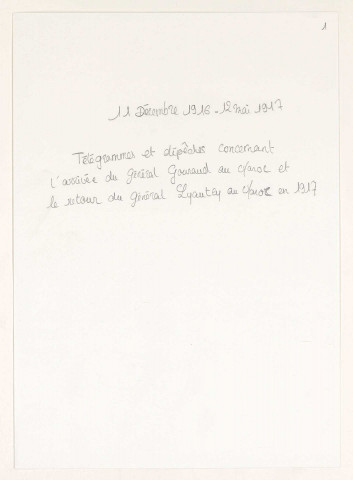 1
11 Décembre 1916 - 12 mai 1917
Télégrammes et dépêches concernant
l'arrivée du général Gouraud au Maroc et
le retour du général Lyautey au Maroc en 1917